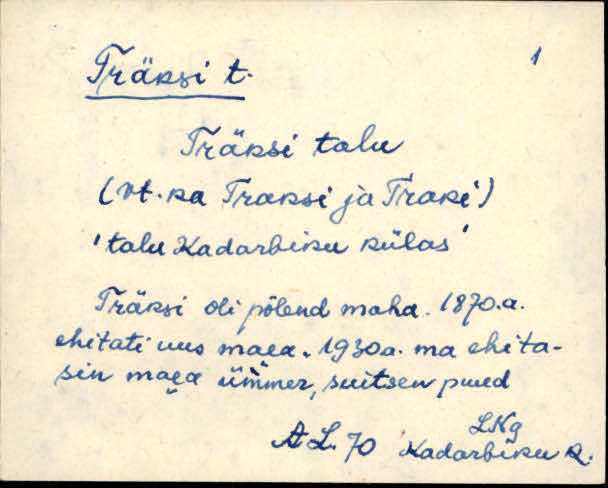 Träksi t. 1
Träksi talu
(vt. ka Traksi ja Traki)
'talu Kadarbiku külas'
Träksi oli põlend maha. 1870.a.
ehitati uus maea. 1930a. ma ehita-
sin maea ümmer, suitsen puud
A L. 70 LNg
Kadarbiku k.